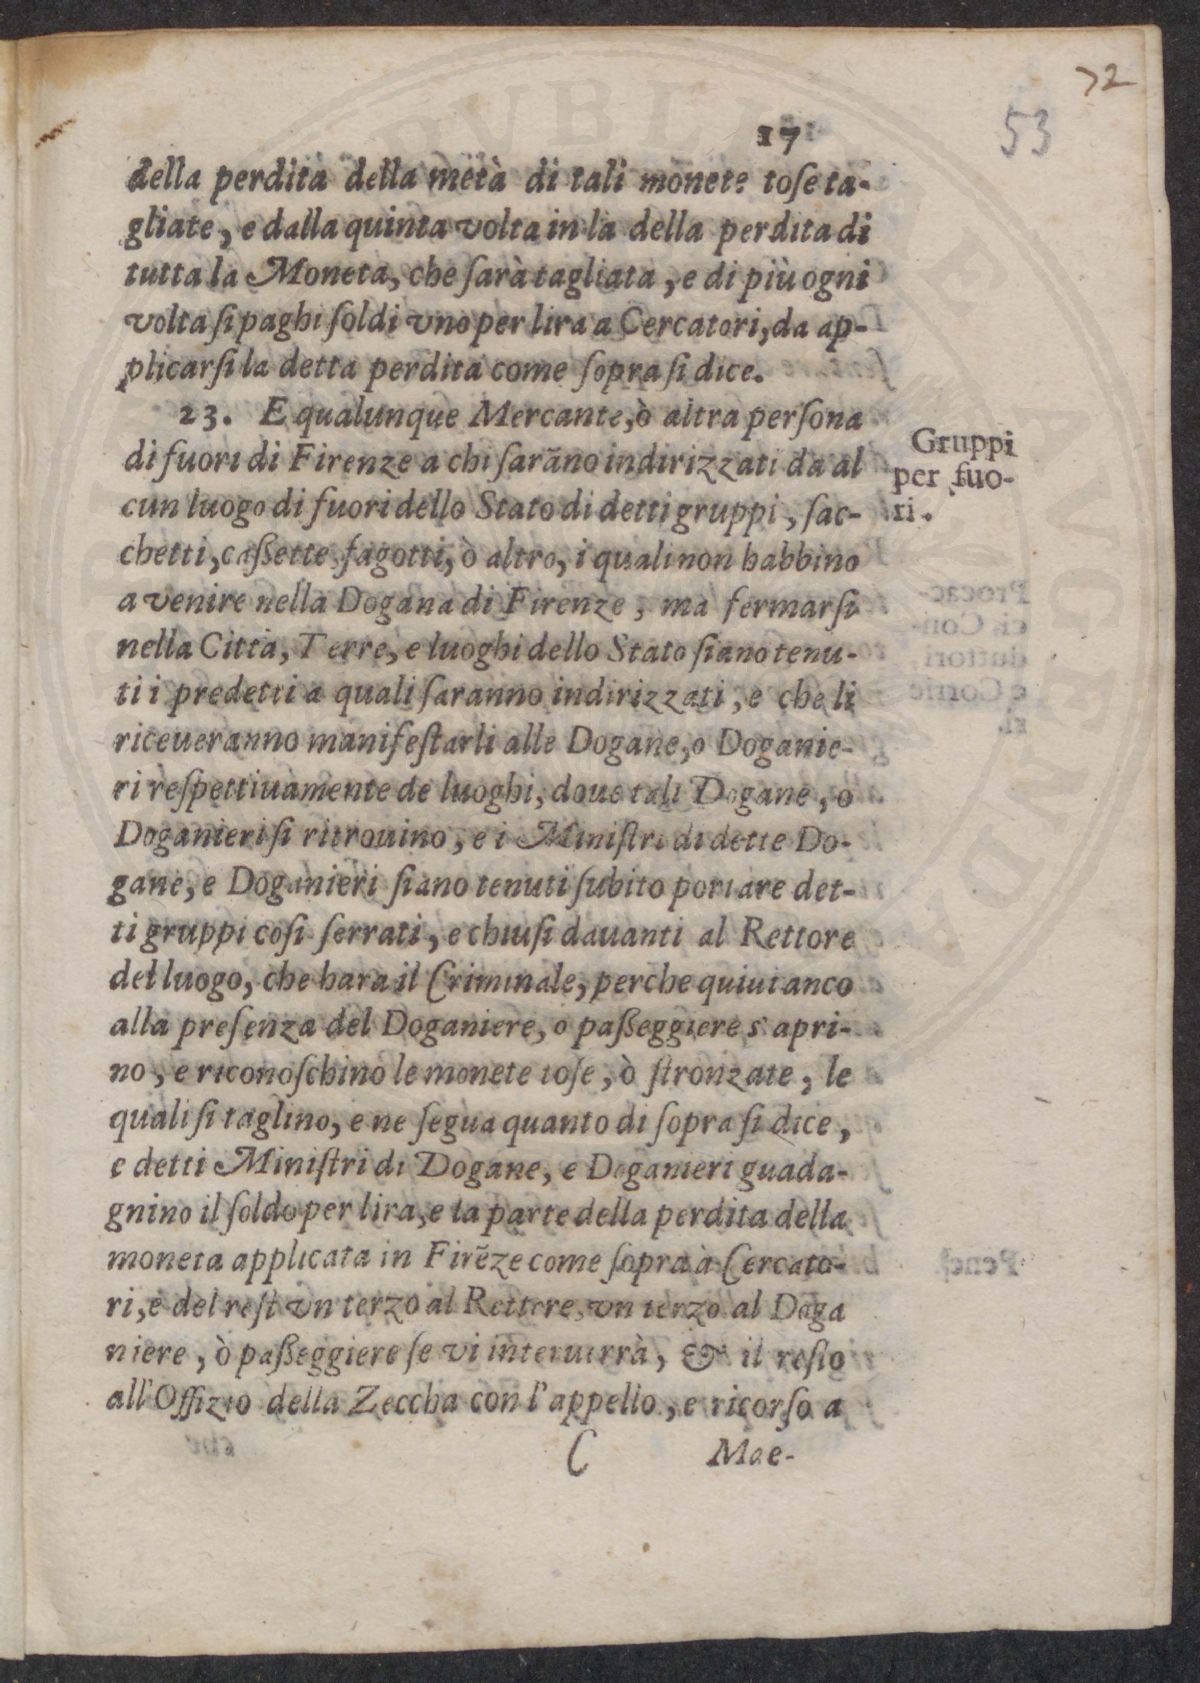 72
53
17
della perdita della metà di tali monete toſe ta-
gliate, e dalla quinta volta in la della perdita di
tutta la Moneta, che ſarà tagliata, e di più ogni
volta ſi paghi ſoldi vno per lira a Cercatori, da ap-
plicarſi la detta perdita come ſopra ſi dice.
23. E qualunque Mercante, ò altra perſona
di fuori di Firenze a chi ſarāno indirizzati da al
cun luogo di fuori dello Stato di detti gruppi, ſac-
chetti, caßette, fagotti, ò altro, i quali non habbino
a venire nella Dogana di Firenze, ma fermarſi
nella Città, Terre, e luoghi dello Stato ſiano tenu-
ti i predetti a quali ſaranno indirizzati, e che li
riceueranno manifeſtarli alle Dogane, o Doganie-
ri reſpettiuamente de luoghi, doue tali Dogane, o
Doganieri ſi ritrouino, e i Miniſtri di dette Do-
gane, e Doganieri ſiano tenuti ſubito portare det-
ti gruppi coſi ſerrati, e chiuſi dauanti al Rettore
del luogo, che hara il Criminale, perche quiui anco
alla preſenza del Doganiere, o paßeggiere s'apri-
no, e riconoſchino le monete toſe, ò ſtronzate, le
quali ſi taglino, e ne ſegua quanto di ſopra ſi dice,
e detti Miniſtri di Dogane, e Doganieri guada-
gnino il ſoldo per lira, e la parte della perdita della
moneta applicata in Firēze come ſopra à Cercato-
ri, e del reſt vn terzo al Rettore, vn terzo al Doga
niere, ò paßeggiere ſe vi interuerrà, & il reſto
all'Offizio della Zeccha con l'appello, e ricorſo a
Gruppi
per fuo-
ri.
C Mae-